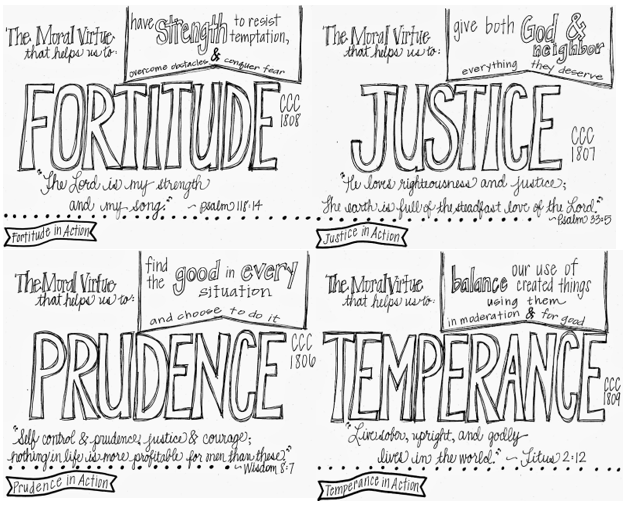 The Moral Virtue
that helps us to:
have Strength to resist
temptation,
overcome obstacles & conquer fear
FORTITUDE
CCC
1808
"The Lord is my strength
and my song." ~ Psalm 118:14
Fortitude in Action
The Moral Virtue
that helps us to:
give both God &
neighbor
everything they deserve
JUSTICE
CCC
1807
"He loves righteousness and justice;
The earth is full of the steadfast love of the Lord."
~Psalm 33:5
Justice in Action
The Moral Virtue
that helps us to:
find
the good in every
situation
and choose to do it
PRUDENCE
CCC
1806
"Self control & prudence, justice & courage;
nothing in life is more profitable for men than these."
~ Wisdom 8:7
Prudence in Action
The Moral Virtue
that helps us to:
balance our use of
created things
using them
in moderation & for good
TEMPERANCE
CCC
1809
"Live sober, upright, and godly
lives in the world." ~ Titus 2:12
Temperance in Action